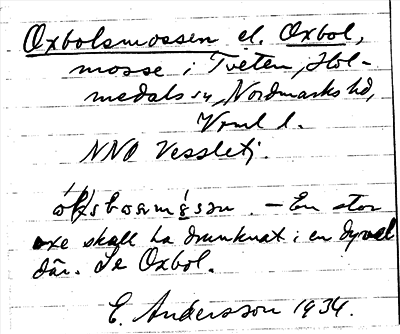 Oxbolsmossen el. Oxbol,
mosse i Tveten, Hol-
medals sn, Nordmarks hd,
Vrml l.
NNO Vessletj.
óksbosmɷ̀sən. – En stor
oxe skall ha drunknat i en dyvel
där. Se Oxbol.
E. Andersson 1934.